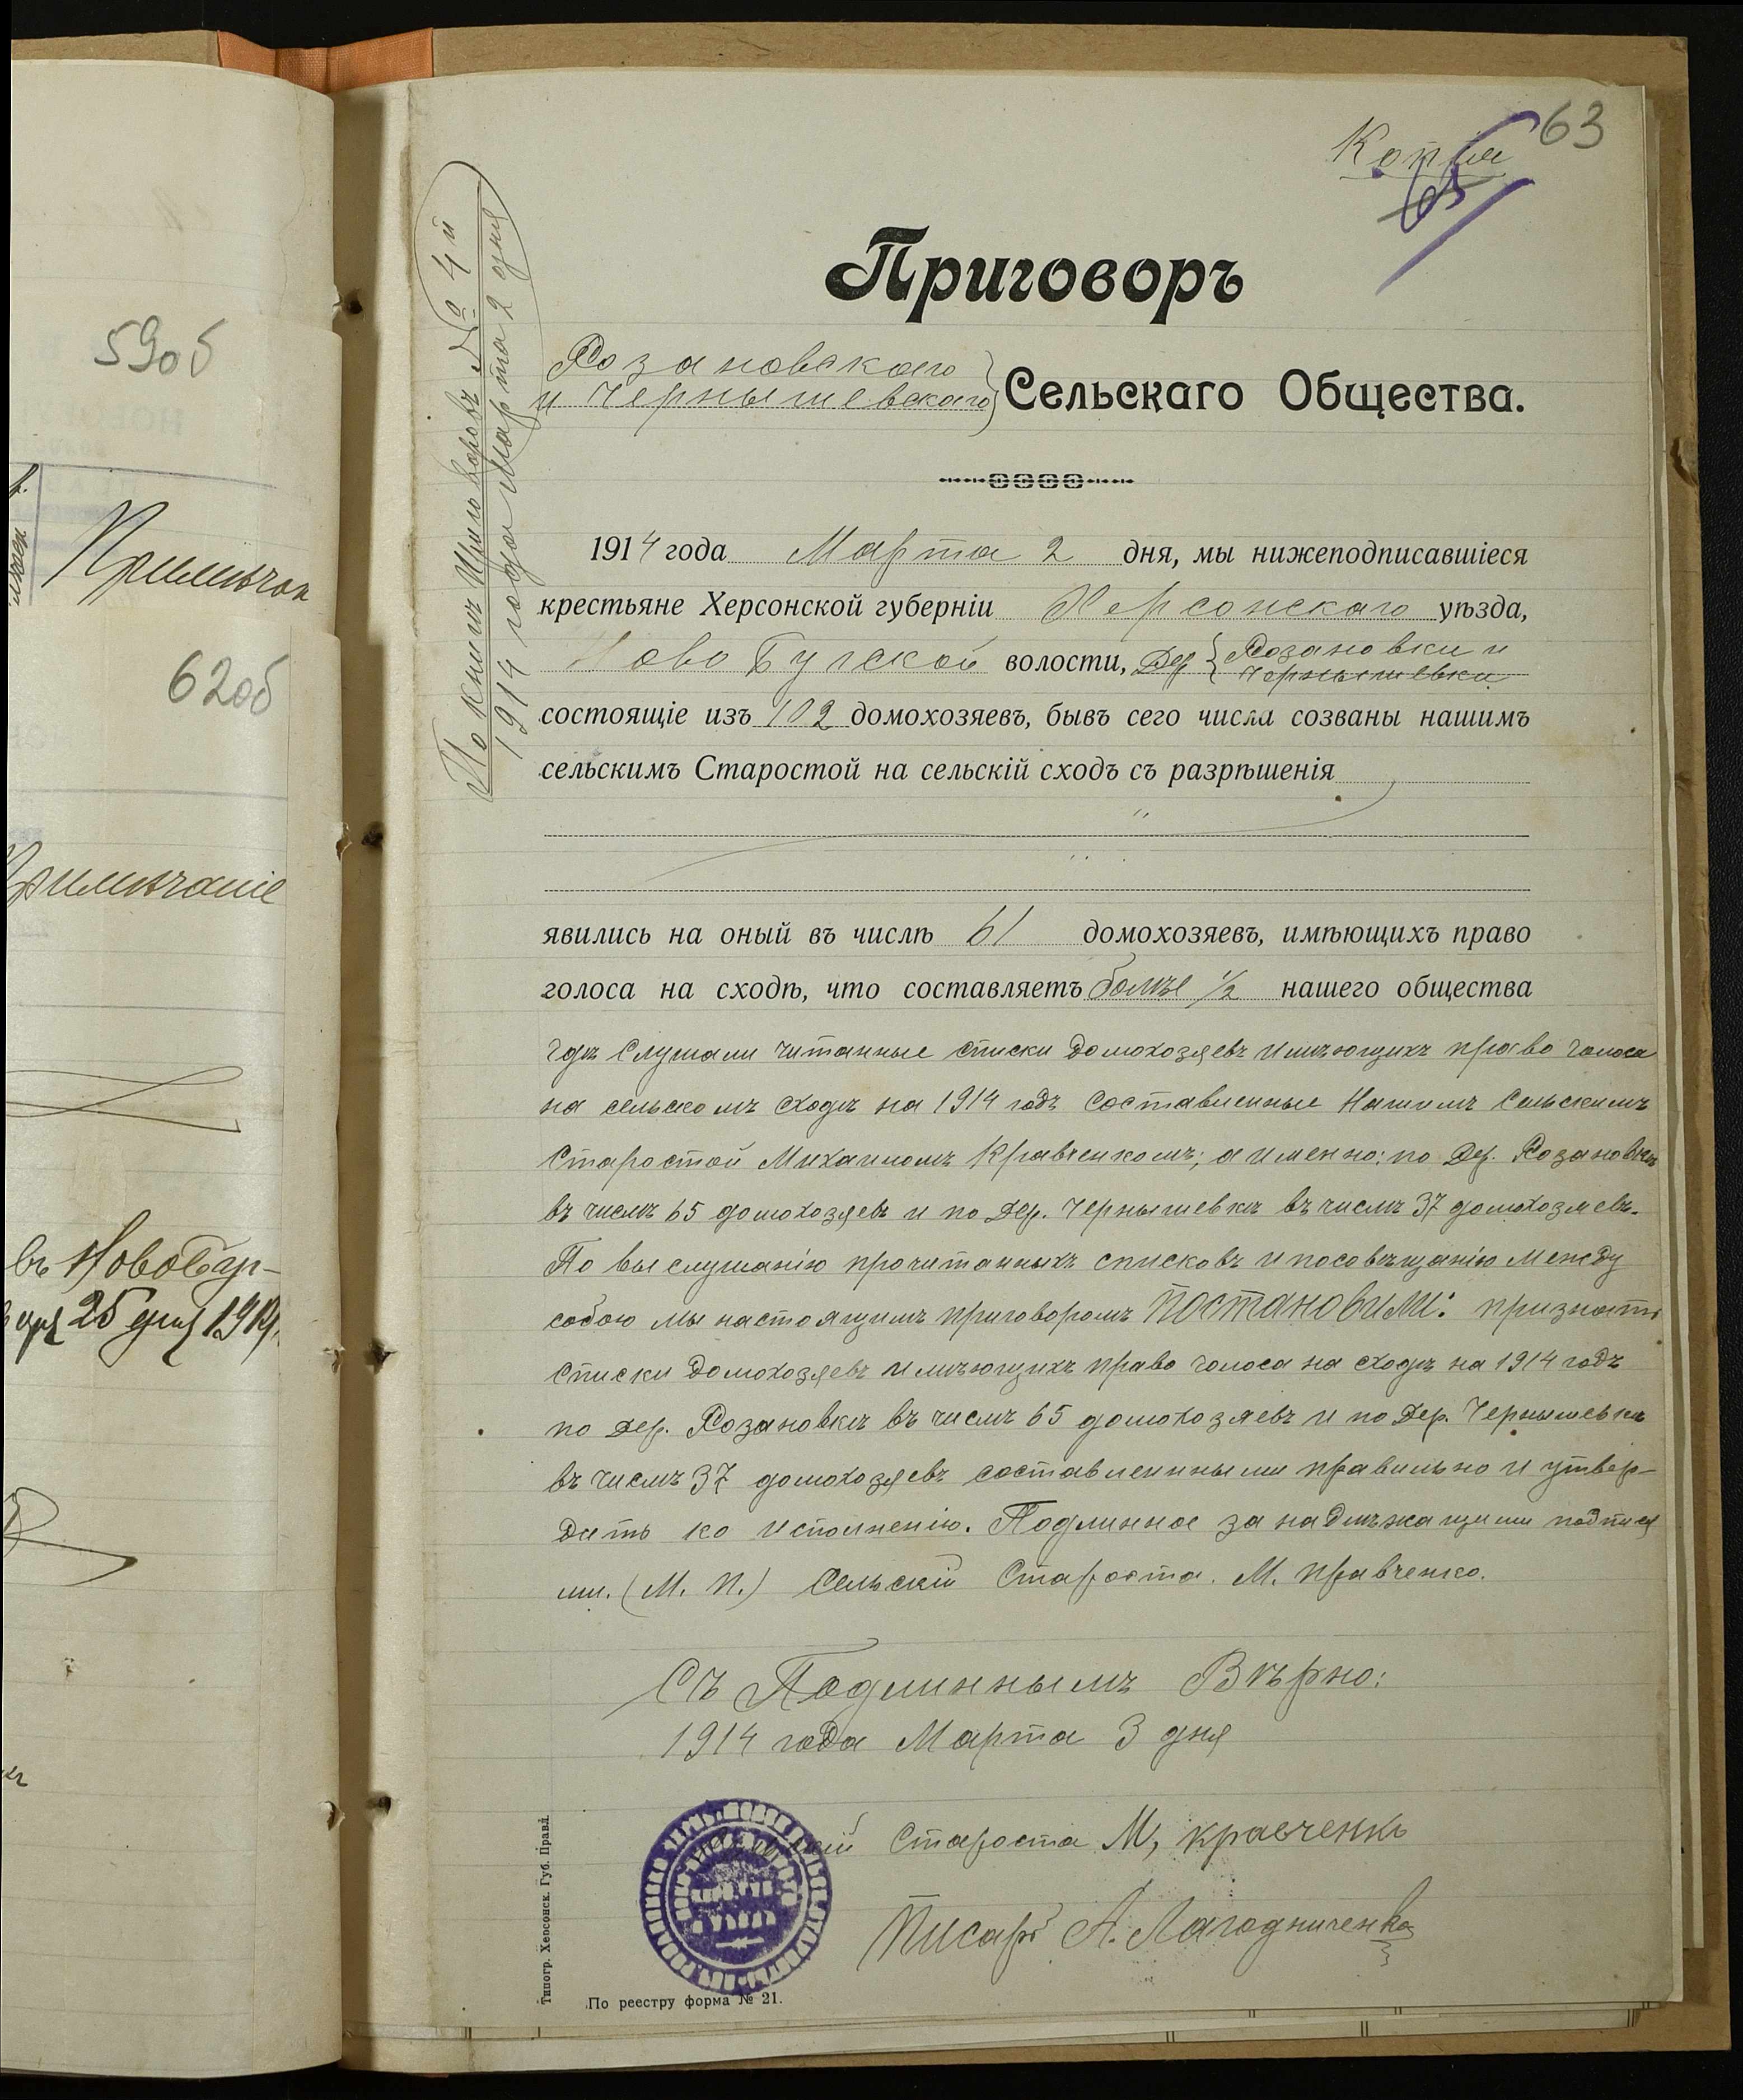 590б
Примѣчан
620б
Примѣчаніе
въ Новобуг-
25 дня 1914
63
Копія
65
По книгѣ Приговоровъ № 4й
1914 года Марта 2 дня
Приговоръ
Розановскаго
и Чернышевскаго
Сельскаго Общества.
1914 года Марта 2 дня, мы нижеподписавшіеся
крестьяне Херсонской губерніи Херсонскаго уѣзда,
Ново Бугской волости, Дер. Розановки и
Чернышевки
состоящіе изъ 102 домохозяевъ, бывъ сего числа созваны нашимъ
сельскимъ Старостой на сельскій сходъ съ разрѣшенія
явились на оный въ числѣ 61 домохозяевъ, имѣющихъ право
голоса на сходѣ, что составляетъ болѣе 1/2 нашего общества
гдѣ Слушали читанные списки Домохозяевъ имѣющихъ право голоса
на сельскомъ сходѣ на 1914 годъ Составленные Нашимъ Сельскимъ
Старостой Михаиломъ Кравченкомъ; а именно: по Дер. Розановкѣ
въ числѣ 65 домохозяевъ и по Дер. Чернышевкѣ въ числѣ 37 домохозяевъ.
По выслушанію прочитанныхъ списковъ и посовѣщанію Между
собою мы настоящимъ приговоромъ Постановили: признать
Списки Домохозяевъ имѣющихъ право голоса на сходѣ на 1914 годъ
по Дер. Розановкѣ въ числѣ 65 домохозяевъ и по Дер. Чернышевкѣ
въ числѣ 37 домохозяевъ составленными правильно и утвер-
дить ко исполненію. Подлинное за надлѣжащими подпися
ми. (М. П.) Сельскій Староста. М. Кравченко.
Съ Подлиннымъ Вѣрно:
1914 года Марта 3 дня
Староста М, кравченкъ
Писарь А. Лагодниченко
Типогр. Херсонск. Губ. Правл.
По реестру форма № 21.